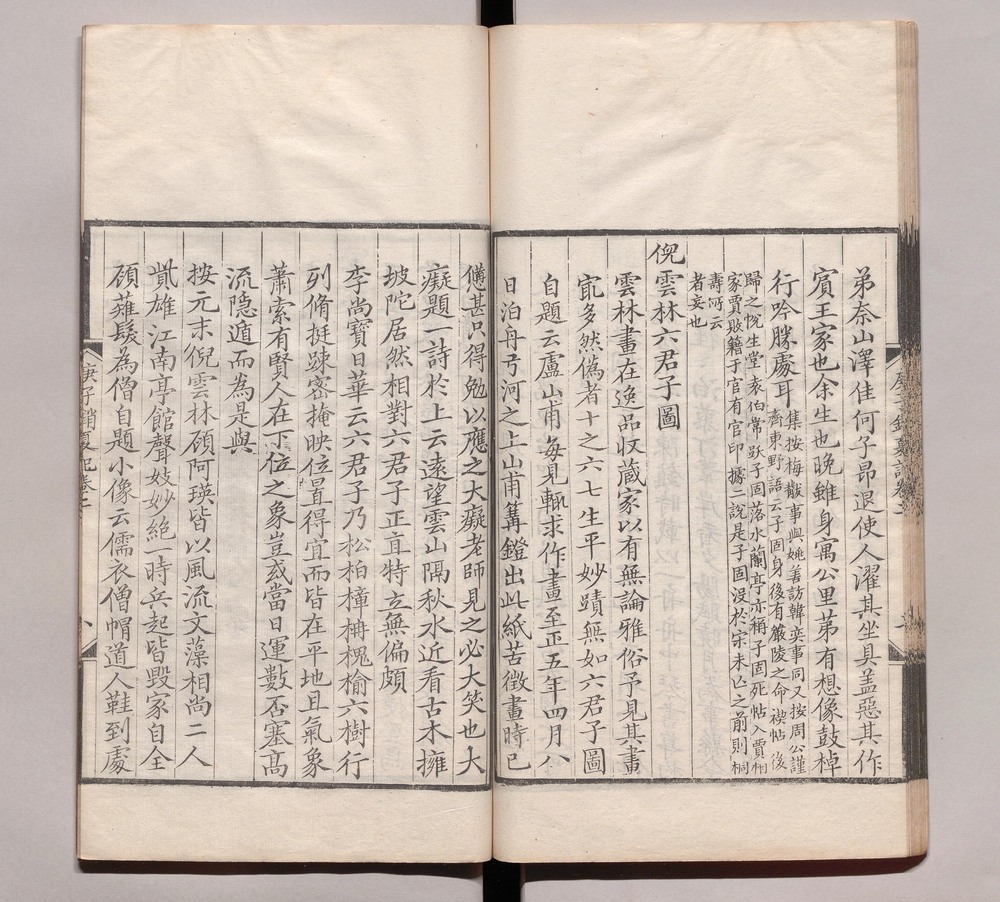 弟奈山澤佳何子昂退使人濯其坐具盖惡其作
賓王家也余生也晚雖身寓公里苐有想像鼓棹
行吟勝處耳
集按梅磵事與姚菩訪韓奕事同又按周公謹
齊東野語云子固身後有嚴陵之命禊帖後
歸之悅生堂袁伯常跋子固落水蘭亭亦稱子固死帖入賈相
家賈敗籍于官有官印據二說是子固沒於宋未亾之前則桐
壽所云
者妄也
倪雲林六君子圖
雲林畫在逸品收蔵家以有無論雅俗予見其畫
㝡多然偽者十之六七生平妙蹟無如六君子圖
自題云盧山甫每見輒求作畫至正五年四月八
日泊舟弓河之上山甫篝鐙出此紙苦徵畫時已
憊甚只得勉以應之大癡老師見之必大笑也大
癡題一詩於上云遠望雲山隔秋水近看古木擁
坡陀居然相對六君子正直特立無偏頗
李尚寶日華云六君子乃松柏樟柟槐榆六樹行
列脩挺踈密掩映位置得宜而皆在平地且氣象
蕭索有賢人在下位之象豈或當日運數否塞髙
流隐遁而為是與
按元末倪雲林顧阿瑛皆以風流文藻相尚二人
貲雄江南亭館聲妓妙絕一時兵起皆毀家自全
顧薙髮為僧自題小像云儒衣僧帽道人鞋到處
庚子銷夏記卷二
八